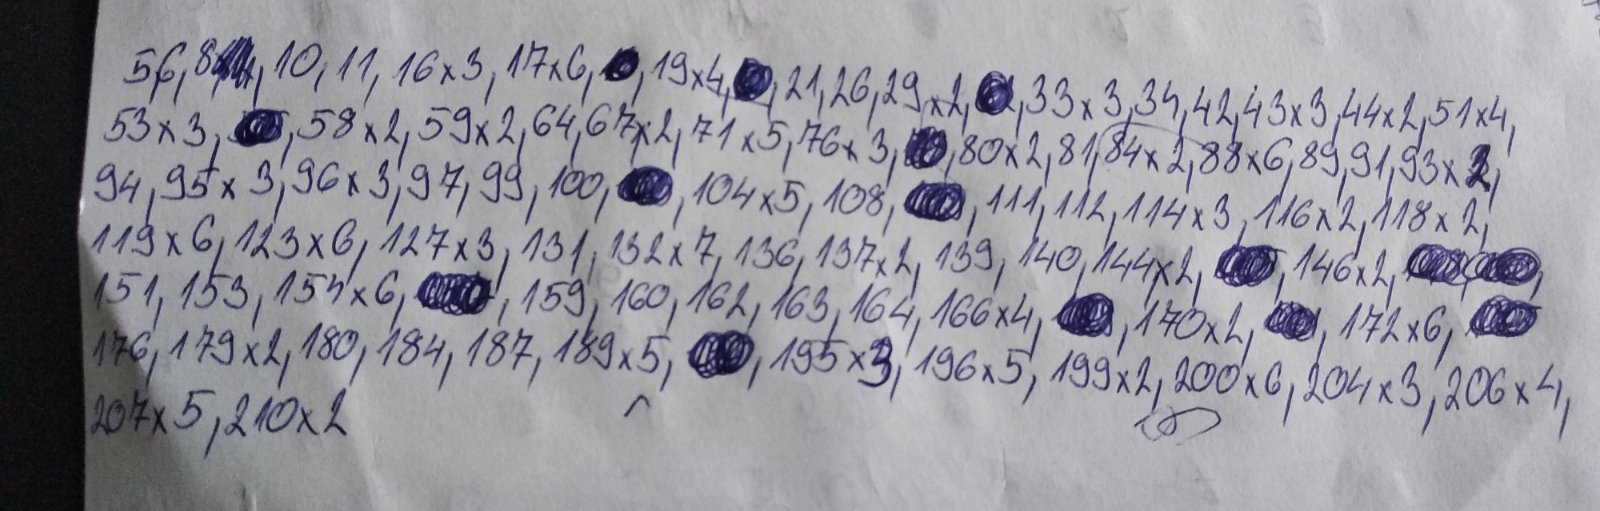 5,6, 8, 10, 11, 16x3, 17x6, 19x4, 21, 26, 29x2, 33x3, 34, 42, 43x3, 44x2, 51x4,
53x3, 58x2, 59x2, 64, 67x2, 71x5, 76x3, 80x2, 81, 84x2, 88x6, 89, 91, 93x2,
94, 95x3, 96x3, 97, 99, 100, 104x5, 108, 111, 112, 114x3, 116x2, 118x2,
119x6, 123x6, 127x3, 131, 132x7, 136, 137x2, 139, 140, 144x2, 146x2,
151, 153, 154x6, 159, 160, 162, 163, 164, 166x4, 170x2, 172x6,
176, 179x2, 180, 184, 187, 189x5, 195x3, 196x5, 199x2, 200x6, 204x3, 206x4,
207x5, 210x2